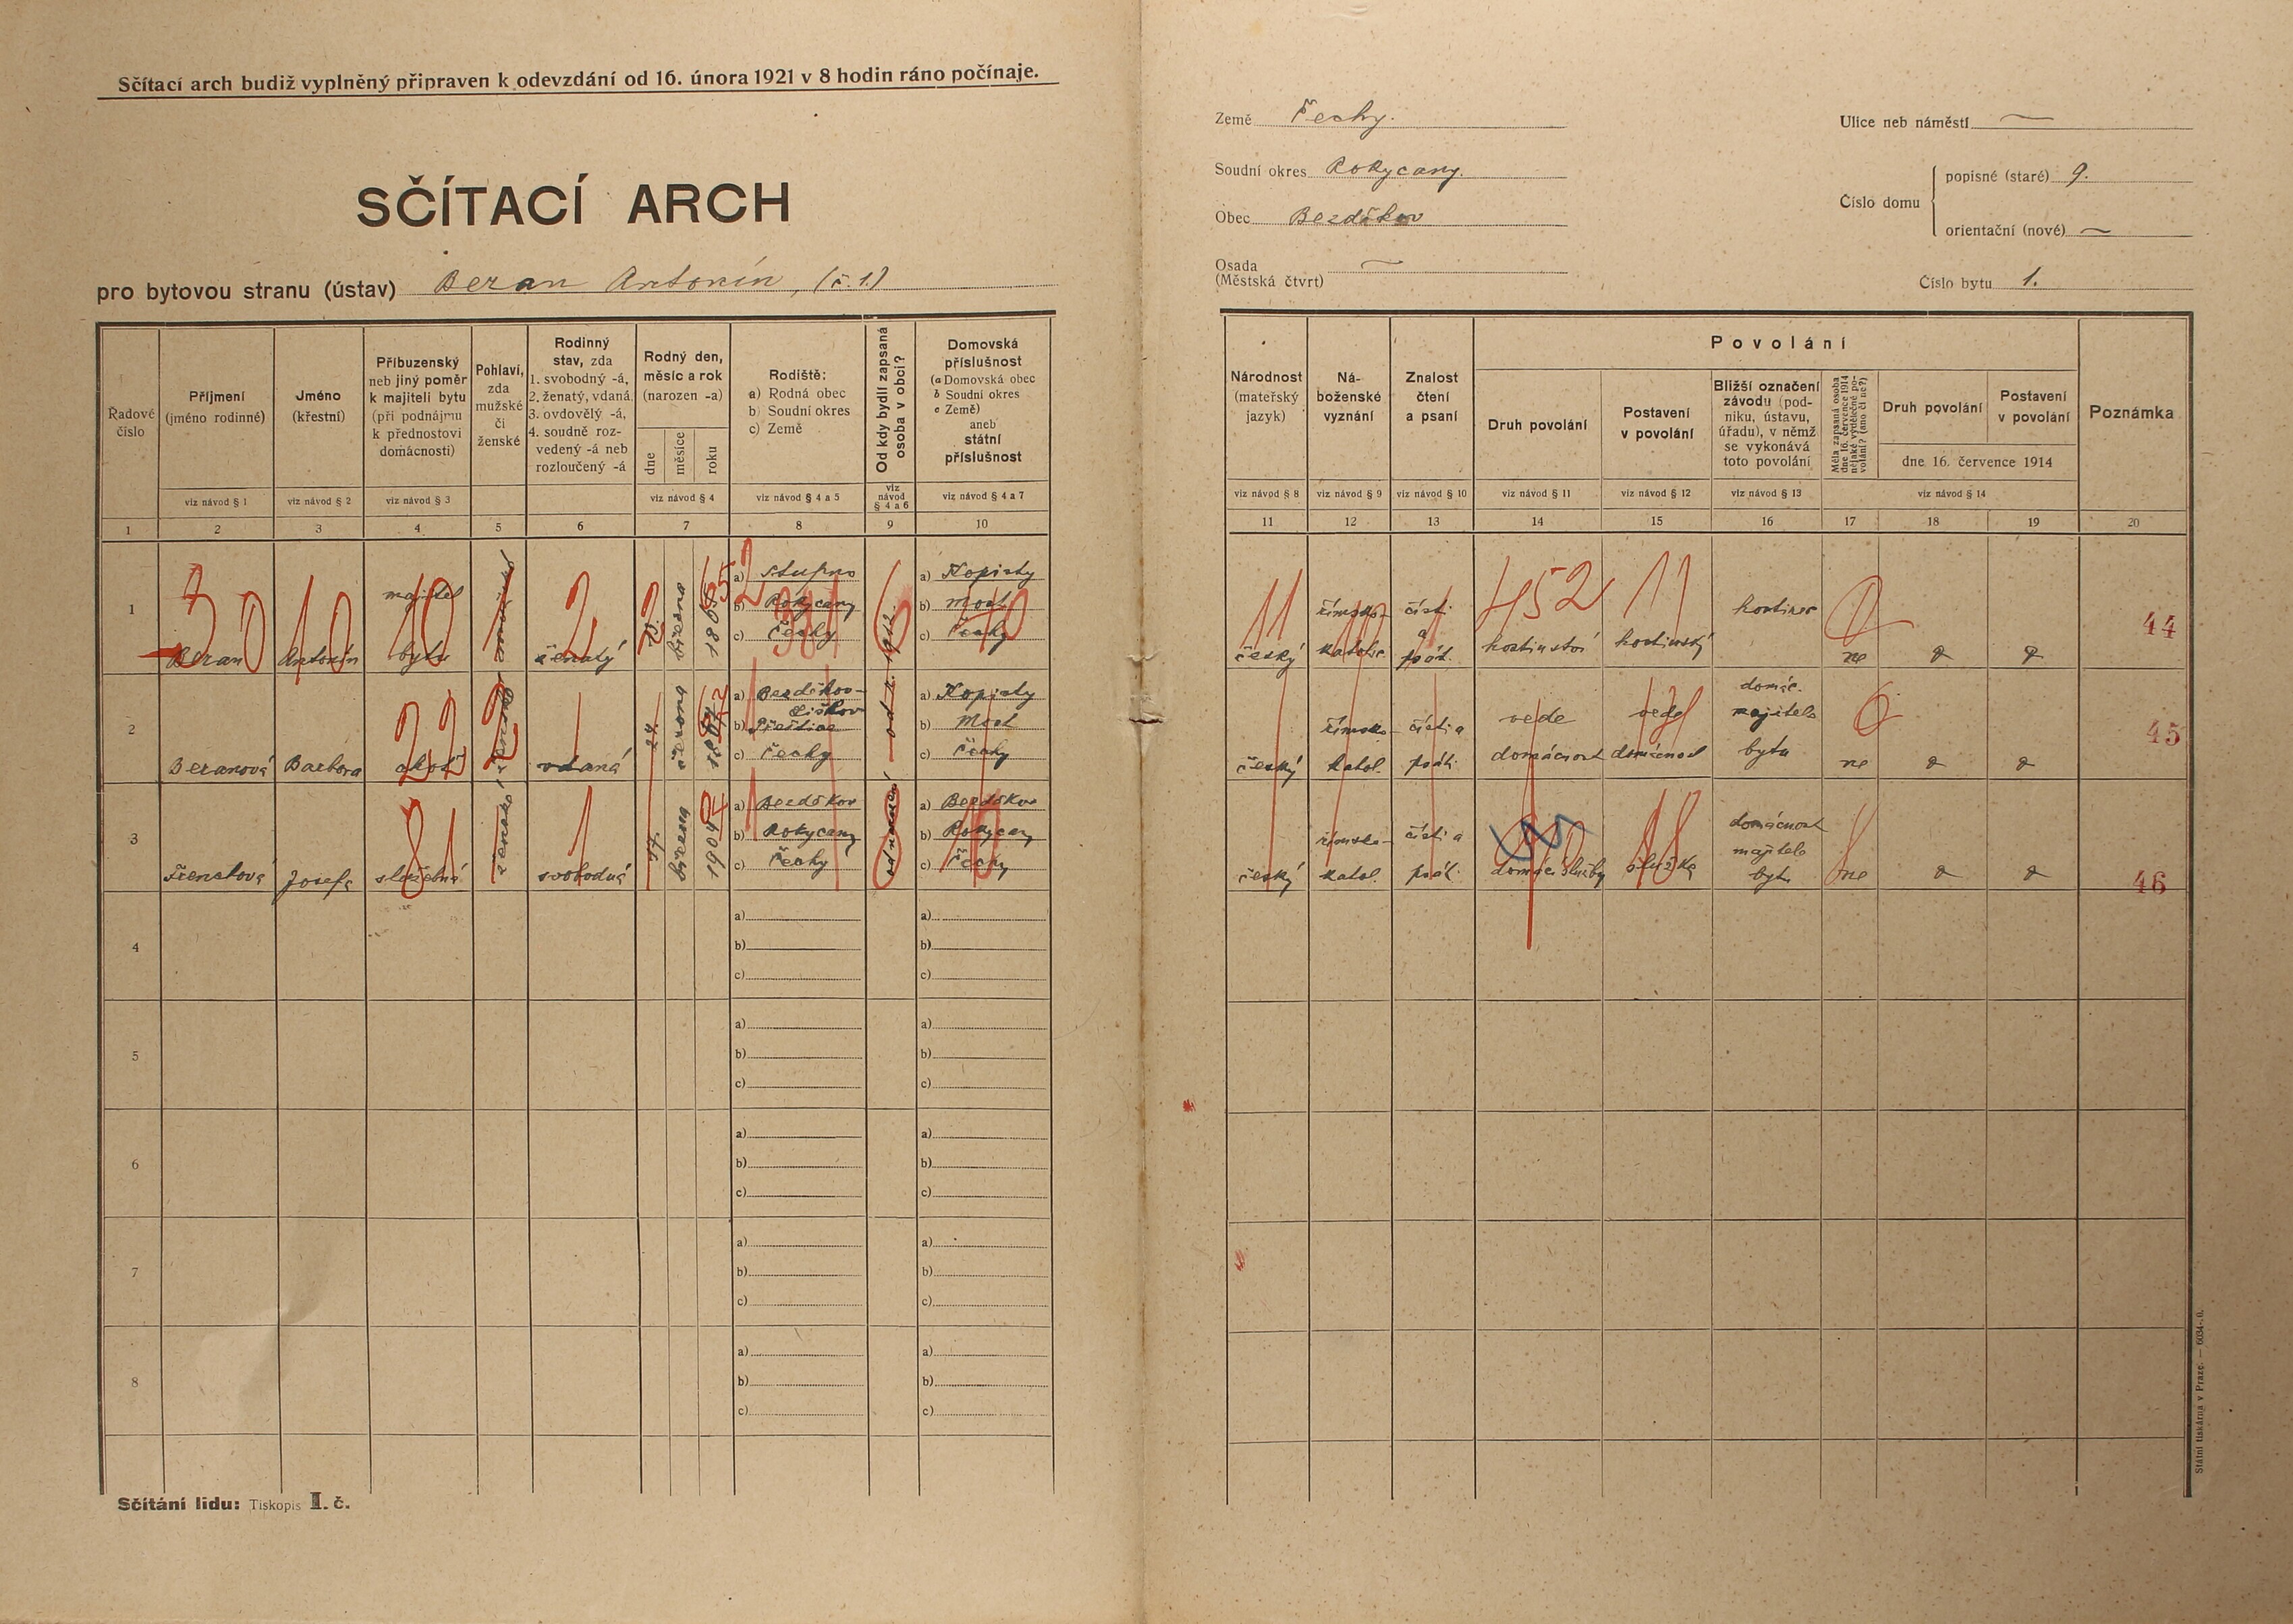 Sčítací arch budiž vyplněný připraven k odevzdání od 16. února 1921 v 8 hodin ráno počínaje.
SČÍTACÍ ARCH
pro bytovou stranu (ústav) Beran Antonín, (č. 1.)
Země Čechy.
Soudní okres Rokycany.
Obec Bezděkov
Osada
(Městská čtvrt) —
Ulice neb náměstí —
Číslo domu
popisné (staré) 9.
orientační (nové) —
Číslo bytu 1.
Řadové
číslo
Příjmení
(jméno rodinné)
viz návod § 1
Jméno
(křestní)
viz návod § 2
Příbuzenský
neb jiný poměr
k majiteli bytu
(při podnájmu
k přednostovi
domácnosti)
viz návod § 3
Pohlaví,
zda
mužské
či
ženské
Rodinný
stav, zda
1. svobodný -á,
2. ženatý, vdaná
3. ovdovělý -á,
4. soudně roz-
vedený -á neb
rozloučený -á
Rodný den,
měsíc a rok
(narozen -a)
dne
měsíce
roku
viz návod § 4
Rodiště:
a) Rodná obec
b) Soudní okres
c) Země
viz návod § 4 a 5
Od kdy bydlí zapsaná
osoba v obci?
viz
návod
§ 4 a 6
Domovská
příslušnost
(a Domovská obec
b Soudní okres
c Země)
aneb
státní
příslušnost
viz návod § 4 a 7
Národnost
(mateřský
jazyk)
viz návod § 8
Ná-
boženské
vyznání
viz návod § 9
Znalost
čtení
a psaní
viz návod § 10
Povolání
Druh povolání
viz návod § 11
Postavení
v povolání
viz návod § 12
Bližší označení
závodu (pod-
niku, ústavu,
úřadu), v němž
se vykonává
toto povolání
viz návod § 13
Měla zapsaná osoba
dne 16. července 1914
nějaké výdělečné po-
volání? (ano či ne?)
Druh povolání
Postavení
v povolání
dne 16. července 1914
viz návod § 14
Poznámka
1 2 3 4 5 6 7 8 9 10
11 12 13 14 15 16 17 18 19 20
1
Beran
Antonín
majitel
bytu
ženatý
března
a) Stupno
b) Rokycany
c) Čechy
a) Kopisty
b) Most
c) Čechy
český
římsko-
katolic.
čísti
a
psát.
452
hostinství
11
hostinský
hostinec
ne
44
2
Beranová
Barbora
22
vdaná
24.
června
a) Bezděkov-
b) Přeštice
c) Čechy
a) Kopisty
b) Most
c) Čechy
český
římsko-
katol.
čísti a
psáti
vede
domácnost
vede
domácnost
domác.
majitele
bytu
ne
45
3
Josefa
81
služebná
ženské
svobodná
března
1904
a) Bezděkov
b) Rokycany
c) Čechy
od narození
a) Bezděkov
b) Rokycany
c) Čechy
český
římsko-
katol.
čísti a
psát.
domácí služby
služka
domácnost
majitele
bytu
ne
46
4
a)
b)
c)
a)
b)
c)
5
a)
b)
c)
a)
b)
c)
6
a)
b)
c)
a)
b)
c)
7
a)
b)
c)
a)
b)
c)
8
a)
b)
c)
a)
b)
c)
Sčítání lidu: Tiskopis I. č.
Státní tiskárna v Praze. — 6034-.0.